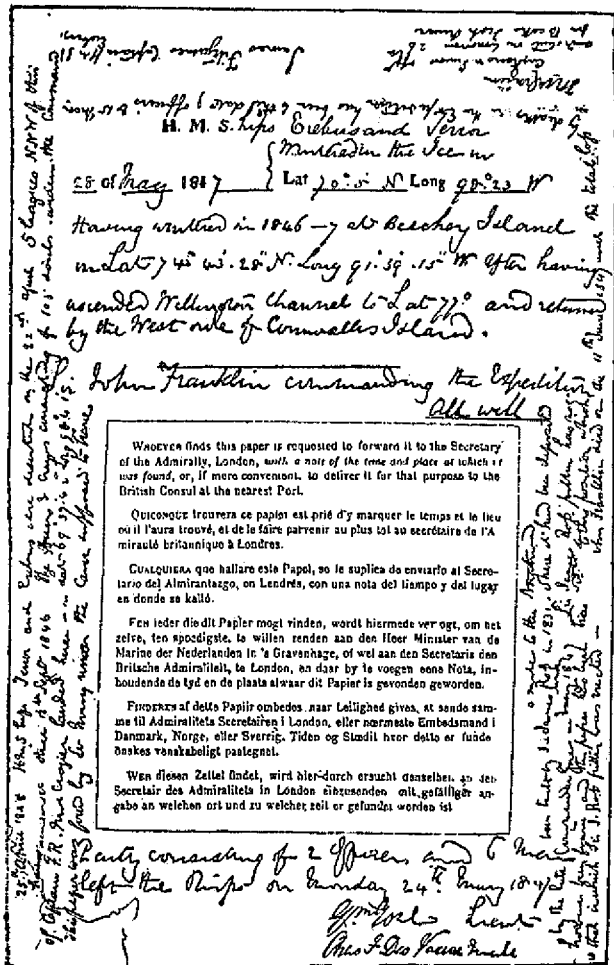 H. M. Ships Erebus and Terror
Wintered in the Ice in
28 of May 1847 Lat 70° 5' N Long 98° 23' W
Having wintered in 1846-7 at Beechey Island
in Lat 74° 43' 28" N. Long 91° 39' 15" W After having
ascended Wellington Channel to Lat 77° and returned
by the West side of Cornwallis Island.
John Franklin commanding the Expedition
All well
WHOEVER finds this paper is requested to forward it to the Secretary
of the Admiralty, London, with a note of the time and place at which it
was found, or, if more convenient, to deliver it for that purpose to the
British Consul at the nearest Port.
QUICONQUE trouvera ce papier est prié d'y marquer le temps et le lieu
où il l'aura trouvé, et de le faire parvenir au plus tot au secrétaire de l'A
mirauté britannique à Londres.
CUALQUIERA que hallare este Papel, se le suplica de enviarlo al Secre-
tario del Almirantazgo, en Londrés, con una nota del tiempo y del lugar
en donde se halló.
EEN ieder die dit Papier mogt vinden, wordt hiermede verzogt, om het
zelve, ten spoedigste, te willen zenden aan den Heer Minister van de
Marine der Nederlanden in 's Gravenhage, of wel aan den Secretaris den
Britsche Admiraliteit, te London, en daar by te voegen eene Nota, in-
houdende de tyd en de plaats alwaar dit Papier is gevonden geworden.
FINDEREN af dette Papiir ombedes, naar Leilighed gives, at sende sam-
me til Admiralitets Secretairen i London, eller nærmeste Embedsmand i
Danmark, Norge, eller Sverrig. Tiden og Stædit hvor dette er fundet
önskes venskabeligt paategnet.
WER diesen Zettel findet, wird hier-durch ersucht denselben an den
Secretair des Admiralitets in London einzusenden mit gefälliger an-
gabe an welchen ort und zu welcher zeit er gefundet worden ist
Party consisting of 2 Officers and 6 Men
left the Ships on Monday 24th May 1847
Gm Gore Lieut
Chas F Des Voeux Mate
25th April 1848 H M Ships Terror and Erebus were deserted on the 22nd April 5 leagues NNW of this
having been beset since 12th Sept 1846 The Officers & Crews consisting of 105 souls under the command
of Captain F.R.M. Crozier landed here in Lat 69° 37' 42" Long 98° 41'
This paper was found by Lt Irving under the cairn supposed to have
been built by Sir James Ross in 1831 where it had been deposited
by the late Commander Gore in June 1847
Sir John Franklin died on the 11th June 1847 and the total loss
by deaths in the Expedition has been to this date 9 officers & 15 Men
James Fitzjames Captain HMS Erebus